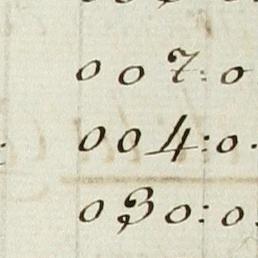 007:0
: 004:0.
030:0